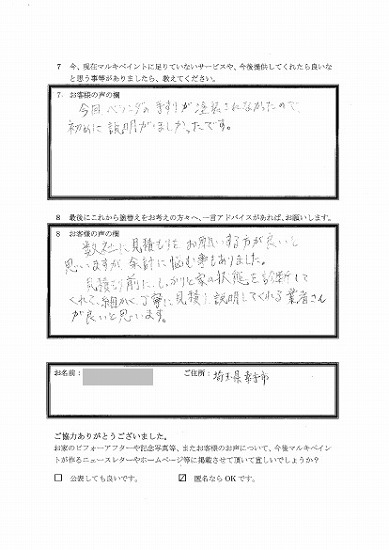 7 今、現在マルキペイントに足りていないサービスや、今後提供してくれたら良いな
と思う事等がありましたら、教えてください。
7. お客様の声の欄
今回ベランダの手すりが塗装されなかったので、
初めに説明がほしかったです。
8 最後にこれから塗替えをお考えの方々へ、一言アドバイスがあれば、お願いします。
8 お客様の声の欄
数社に見積もりをお願いする方が良いと
思いますが、余計に悩む事もありました。
見積り前に、しっかりと家の状態を診断して
くれて、細かく、丁寧に見積り説明してくれる業者さん
が良いと思います。
お名前： ご住所： 埼玉県幸手市
ご協力ありがとうございました。
お家のビフォーアフターや記念写真等、またお客様のお声について、今後マルキペイント
が作るニュースレターやホームページ等に掲載させて頂いて宜しいでしょうか？
☐ 公表しても良いです。 ☑ 匿名ならOKです。